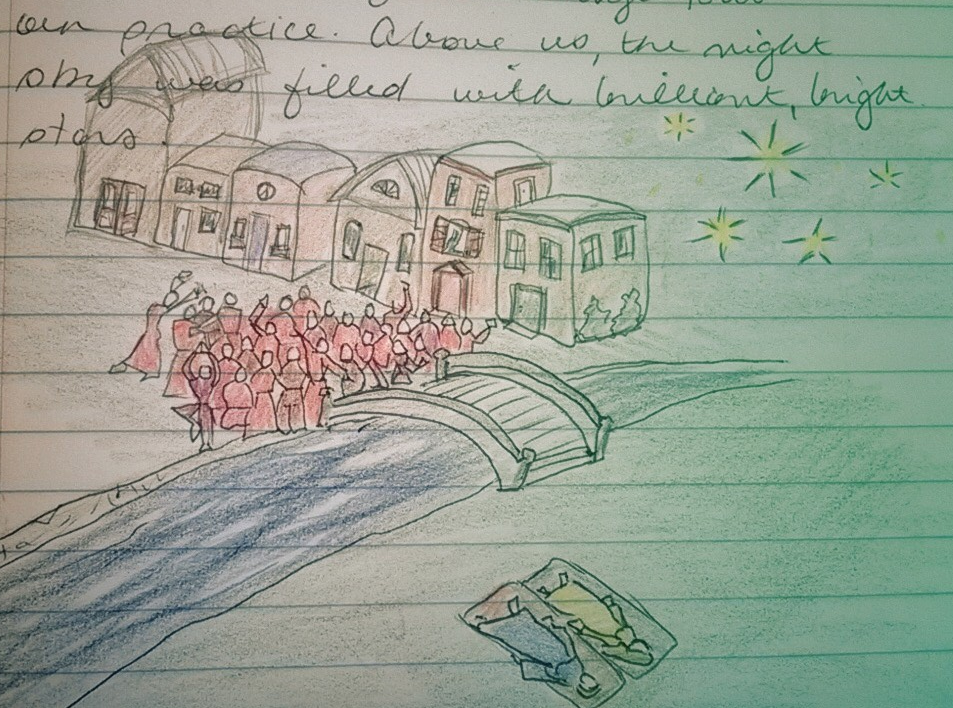 our practice. Above us, the night
sky was filled with brilliant, bright
stars.